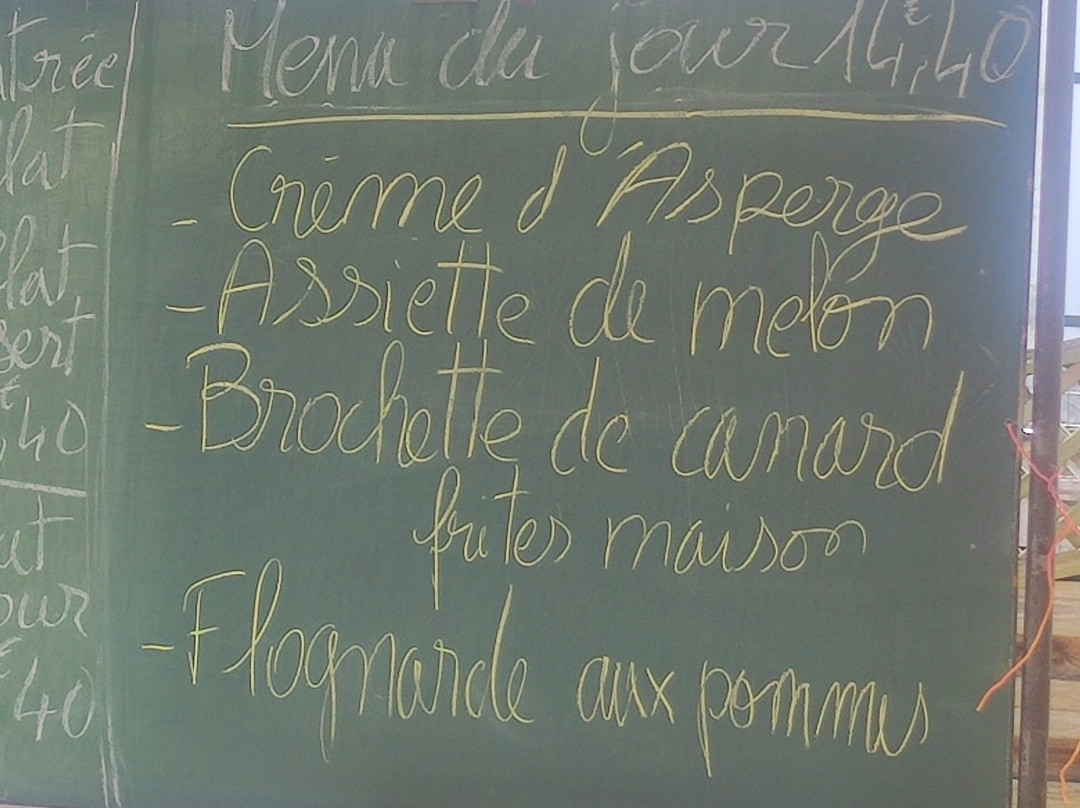 Menu du jour 14,€40
- Crème d'Asperge
- Assiette de melon
- Brochette de canard
frites maison
- Flognarde aux pommes
trée
lat
lat,
sert
€
,40
at
our
€
40